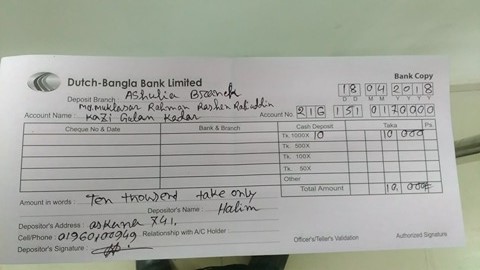 Bank Copy
Dutch-Bangla Bank Limited
18 04 2018
D D M M Y Y Y Y
Deposit Branch : Ashulia Branch
Md. Muklasar Rahman
Account Name : Kazi Golan Kadar
Account No. 216 151 0170000
Cheque No & Date Bank & Branch Cash Deposit Taka Ps.
Tk. 1000X 10 10 000
Tk. 500X
Tk. 100X
Tk. 50X
Other
Total Amount 10, 000
Amount in words : Ten thousend take only
Depositor's Name : Halim
Depositor's Address : askana 741,
Cell/Phone : 01960100949 Relationship with A/C Holder
Depositor's Signature :
Officer's/Teller's Validation Authorized Signature